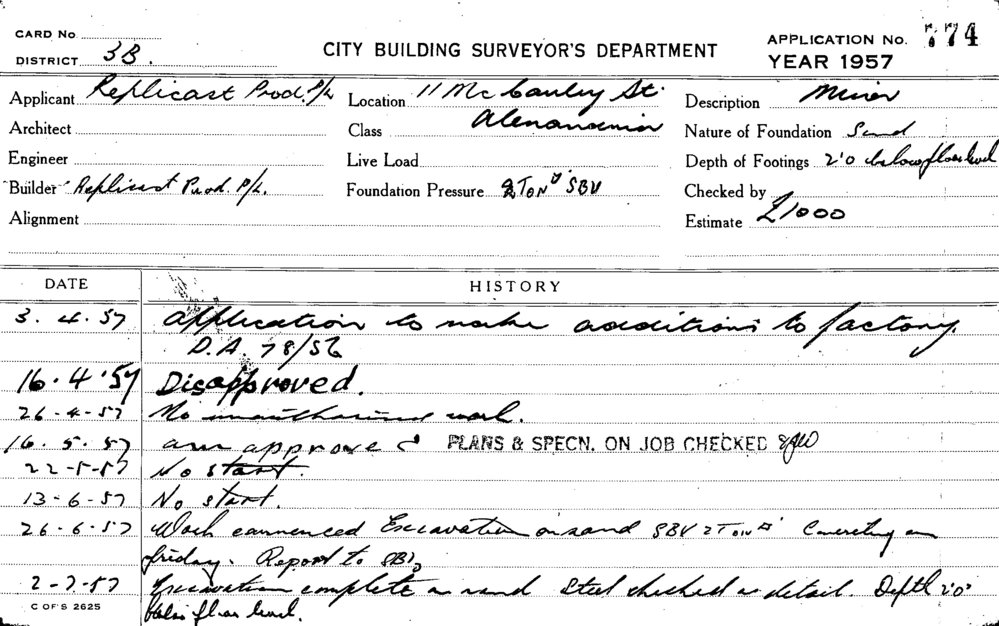 CARD No
DISTRICT 3B.
CITY BUILDING SURVEYOR'S DEPARTMENT
APPLICATION No. 774
YEAR 1957
Applicant Replicast Prod. P/L
Location 11 McCauley St.
Alexandria
Description Minor
Architect
Class
Nature of Foundation Sand
Engineer
Live Load
Depth of Footings 2'0 below floor level
Builder Replicast Prod. P/L.
Foundation Pressure 2 TON □' SBV
Checked by
Alignment
Estimate £1000
DATE
HISTORY
3. 4. 57 Application to make additions to factory.
D.A. 78/56
16. 4. 57 Disapproved.
26-4-57 No unauthorised work.
16. 5. 57 approved PLANS & SPECN. ON JOB CHECKED
22-5-57 No start.
13-6-57 No start.
26-6-57 Work commenced Excavation on sand SBV 2 TON □' Concreting on
friday. Report to SBI
2-7-57 Excavation complete on sand Steel checked as detail. Depth 2'0"
below floor level.
C OF S 2625